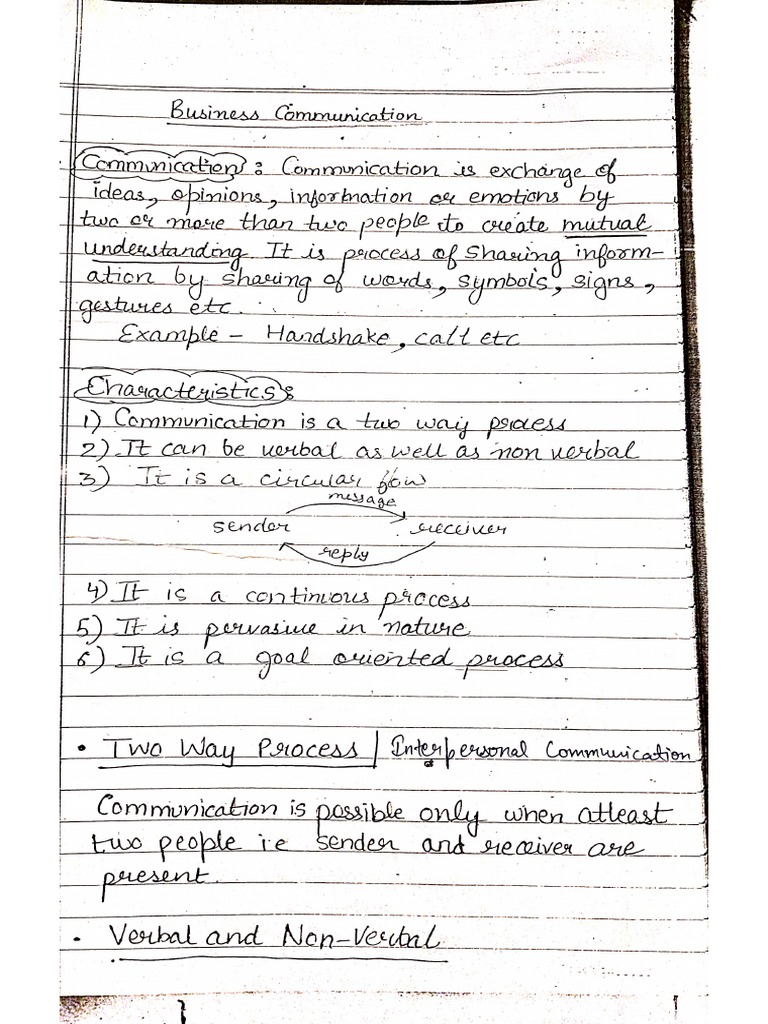 Business Communication
Communication : Communication is exchange of
ideas, opinions, information or emotions by
two or more than two people to create mutual
understanding. It is process of sharing inform-
ation by sharing of words, symbols, signs,
gestures etc.
Example - Handshake, call etc
Characteristics :
1) Communication is a two way process
2) It can be verbal as well as non verbal
3) It is a circular flow
message
sender receiver
reply
4) It is a continuous process
5) It is pervasive in nature
6) It is a goal oriented process
• Two Way Process / Interpersonal Communication
Communication is possible only when atleast
two people i.e sender and receiver are
present.
• Verbal and Non-Verbal